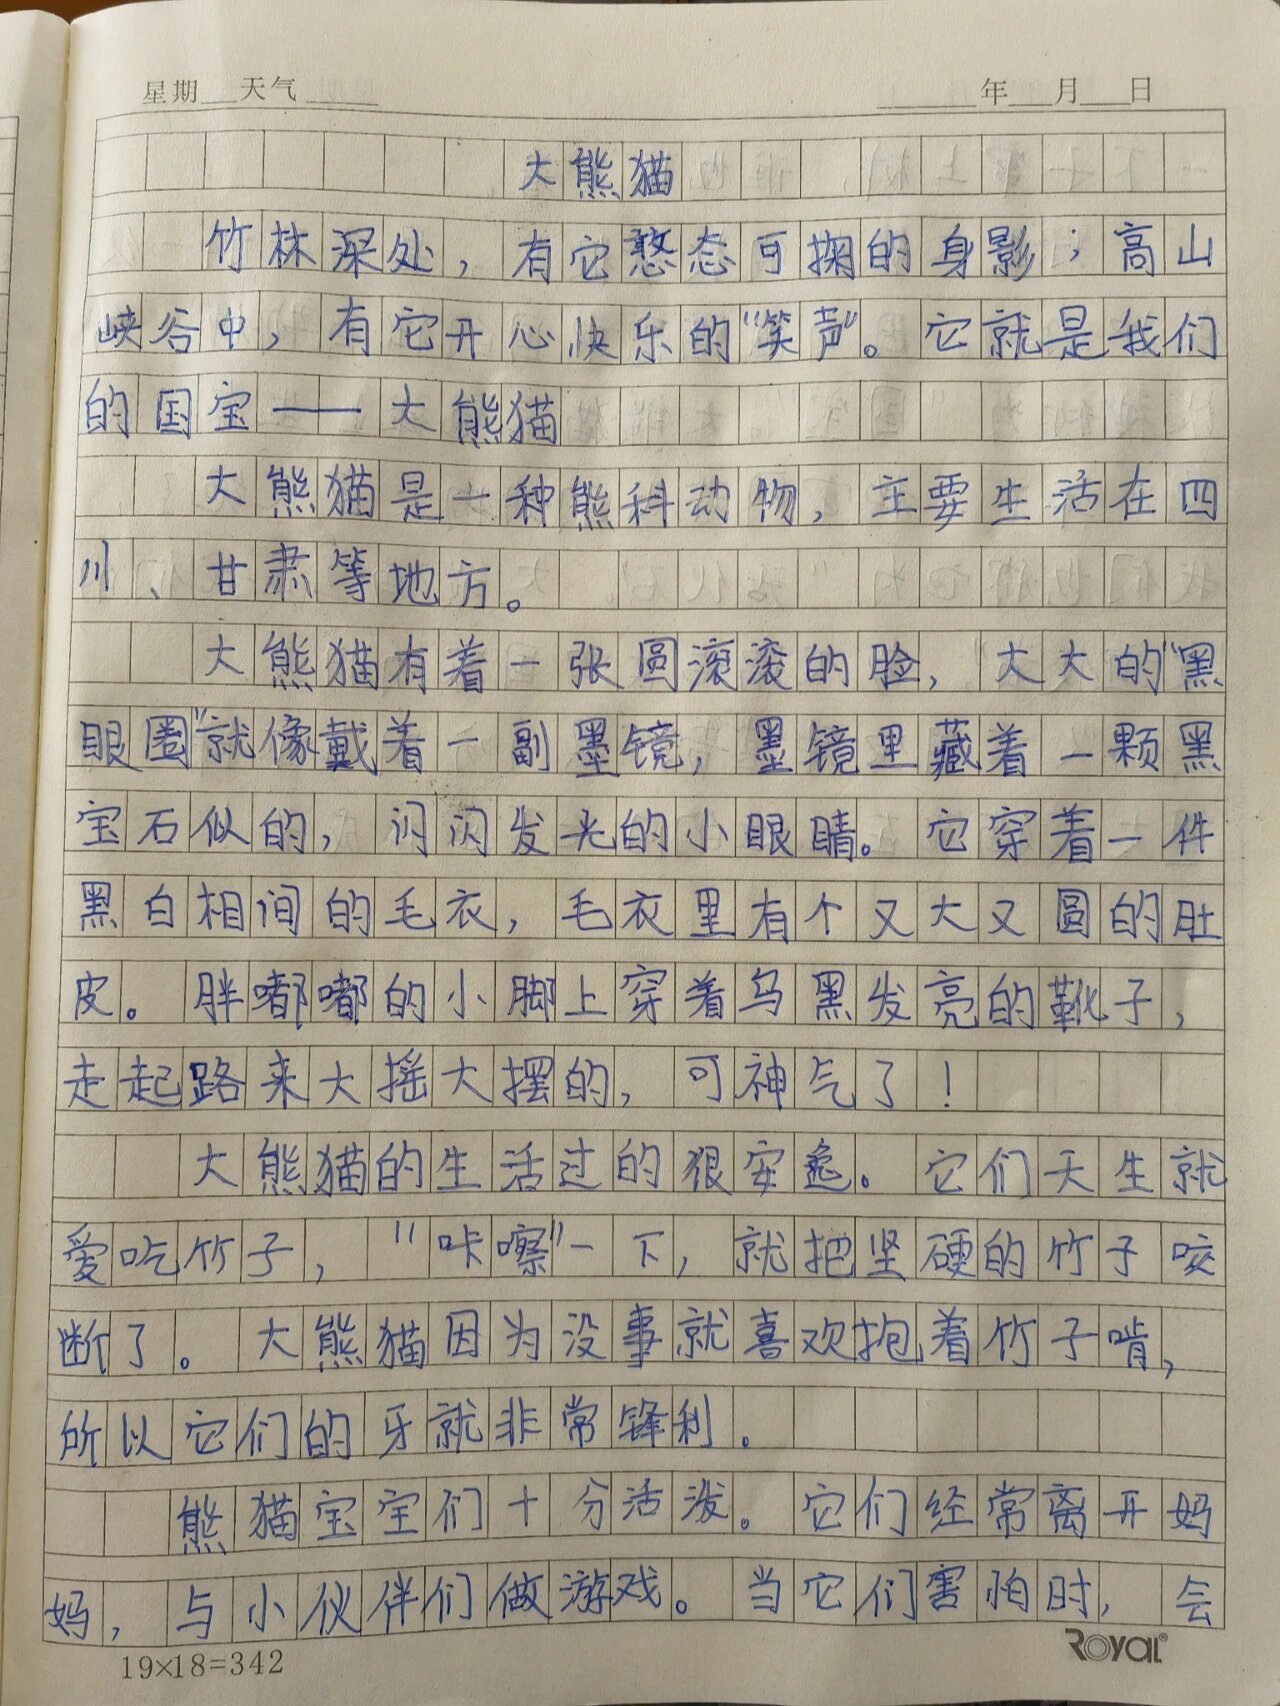 星期___天气____ ______年___月___日
大熊猫
竹林深处，有它憨态可掬的身影；高山
峡谷中，有它开心快乐的“笑声”。它就是我们
的国宝——大熊猫
大熊猫是一种熊科动物，主要生活在四
川、甘肃等地方。
大熊猫有着一张圆滚滚的脸，大大的“黑
眼圈”就像戴着一副墨镜，墨镜里藏着一颗黑
宝石似的，闪闪发光的小眼睛。它穿着一件
黑白相间的毛衣，毛衣里有个又大又圆的肚
皮。胖嘟嘟的小脚上穿着乌黑发亮的靴子，
走起路来大摇大摆的，可神气了！
大熊猫的生活过的很安逸。它们天生就
爱吃竹子，“咔嚓”一下，就把坚硬的竹子咬
断了。大熊猫因为没事就喜欢抱着竹子啃，
所以它们的牙就非常锋利。
熊猫宝宝们十分活泼。它们经常离开妈
妈，与小伙伴们做游戏。当它们害怕时，会
19×18=342 ROYAL®